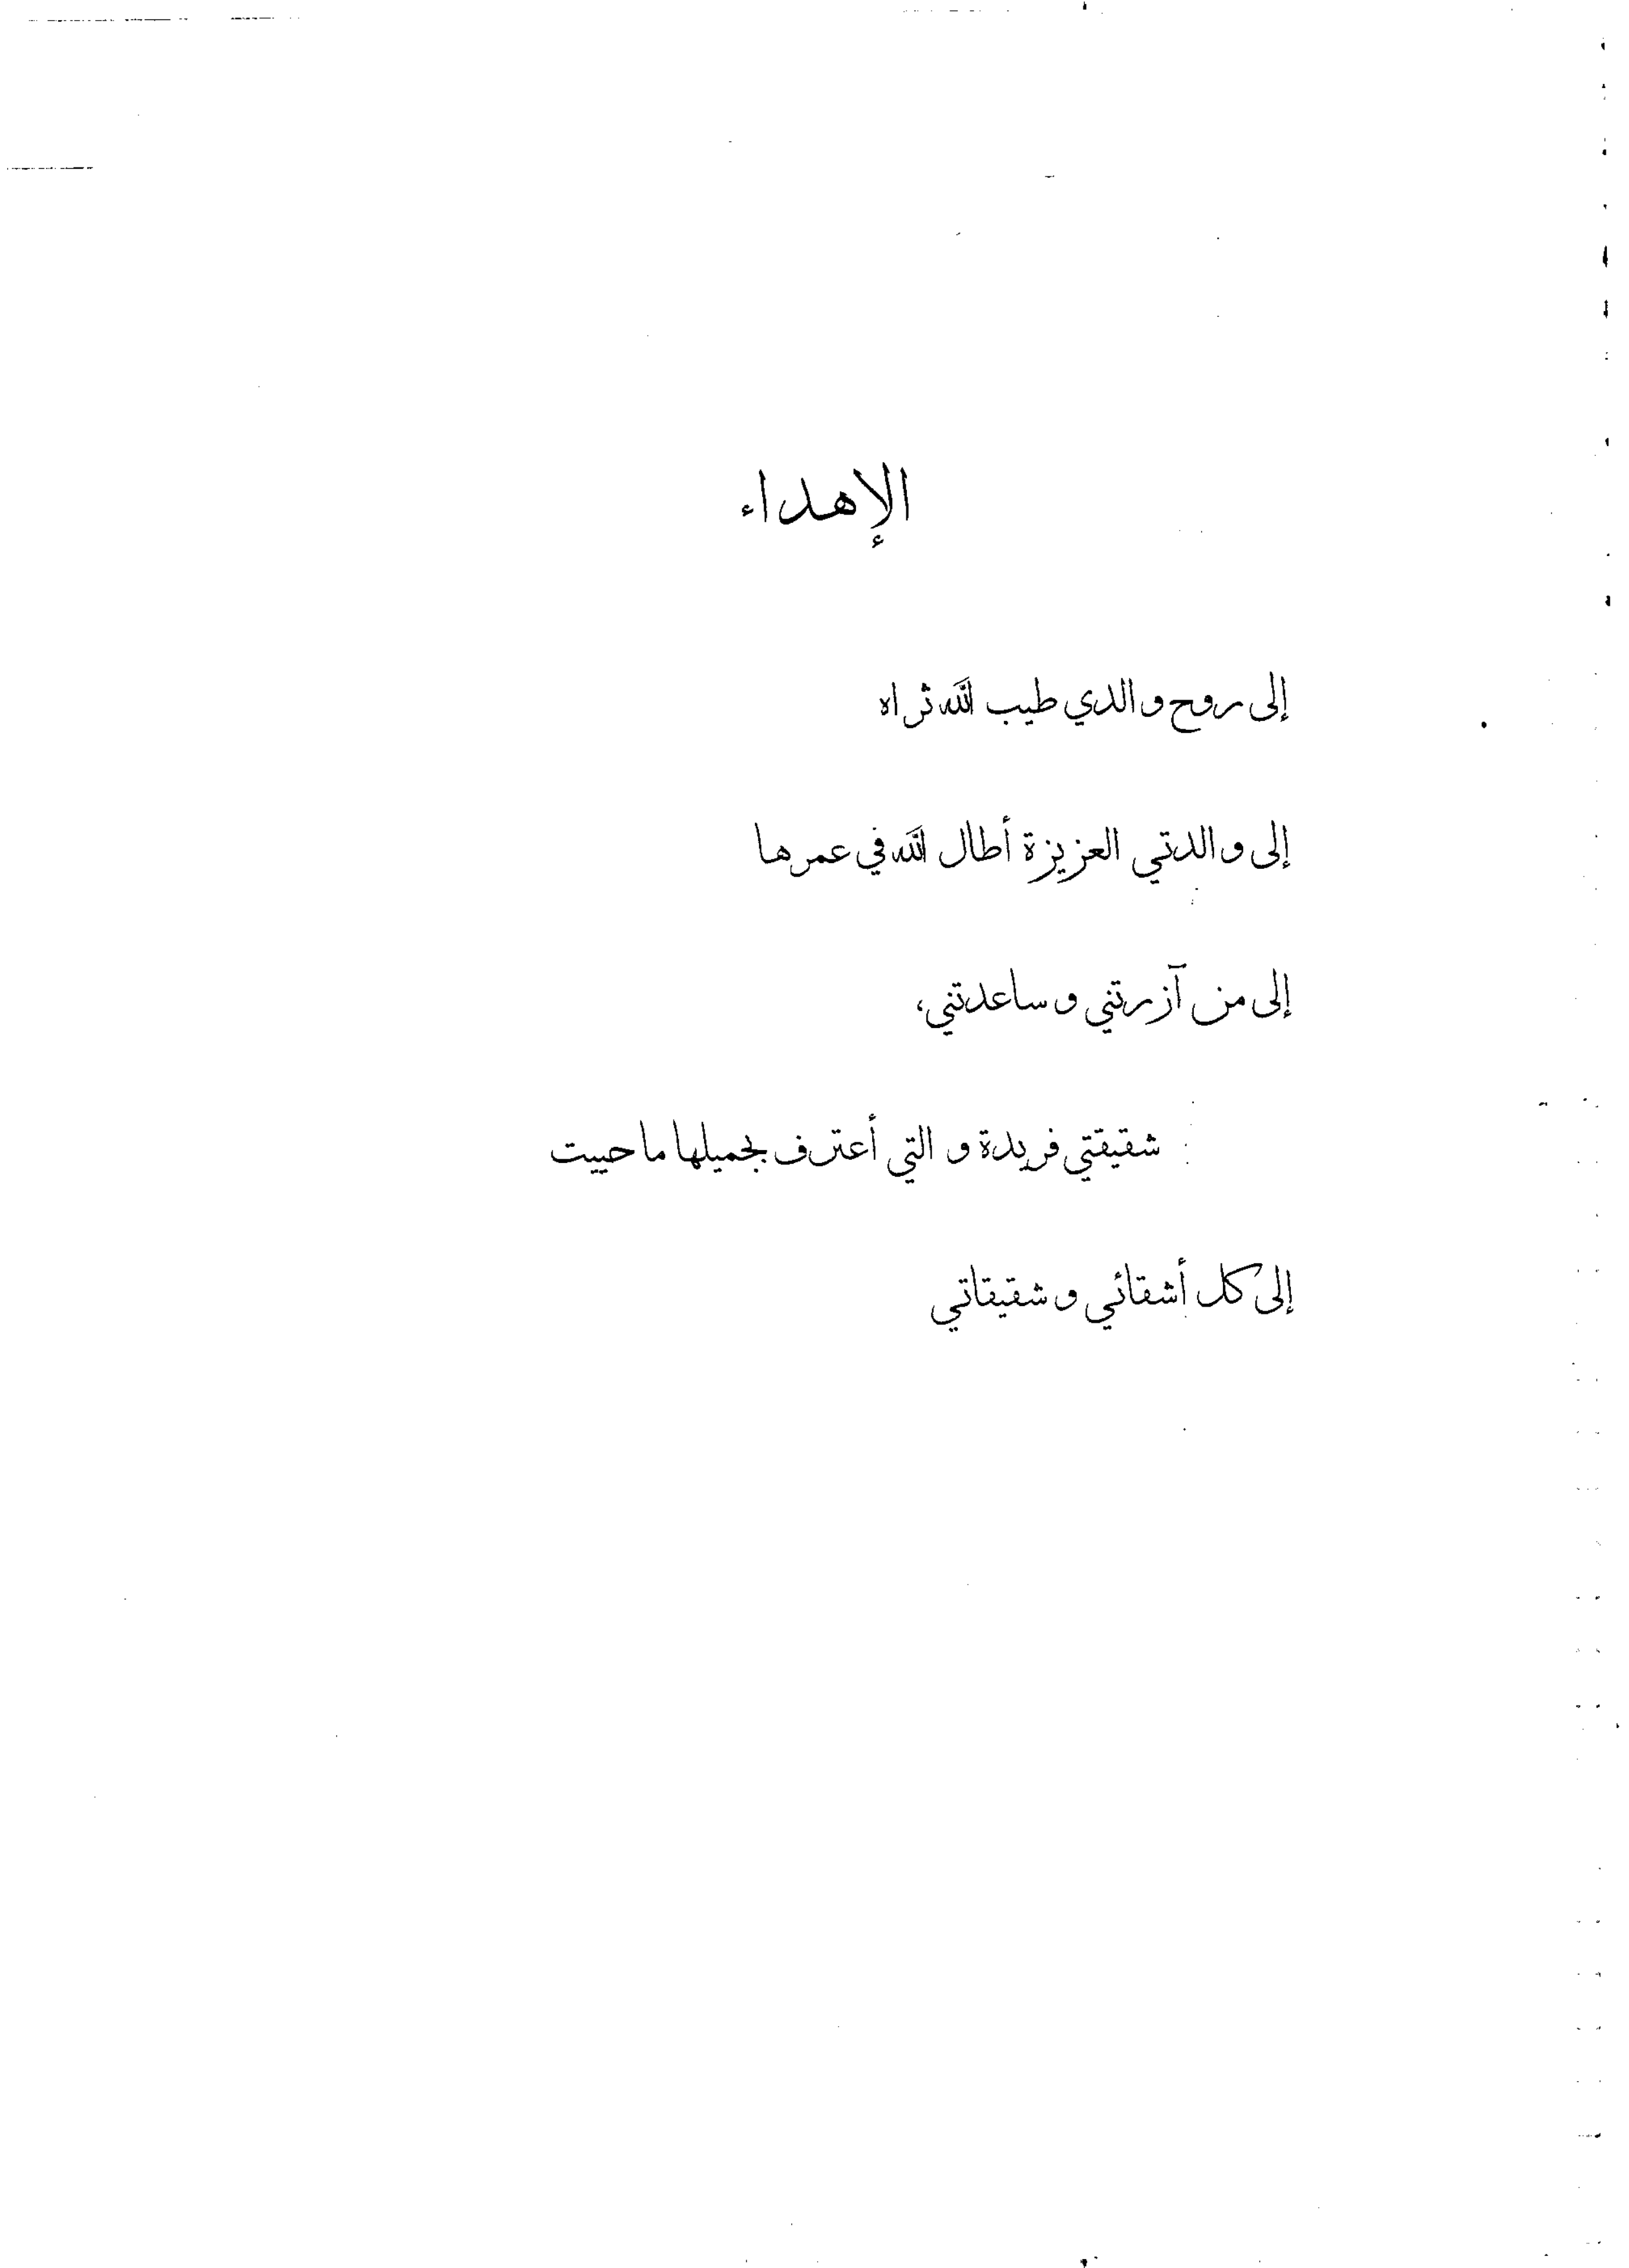 الإهداء
إلى روح والدي طيب الله ثراه
إلى والدتي العزيزة أطال الله في عمرها
إلى من آزرتني وساعدتني،
شقيقتي فريدة و التي أعترف بجميلها ما حييت
إلى كل أشقائي و شقيقاتي